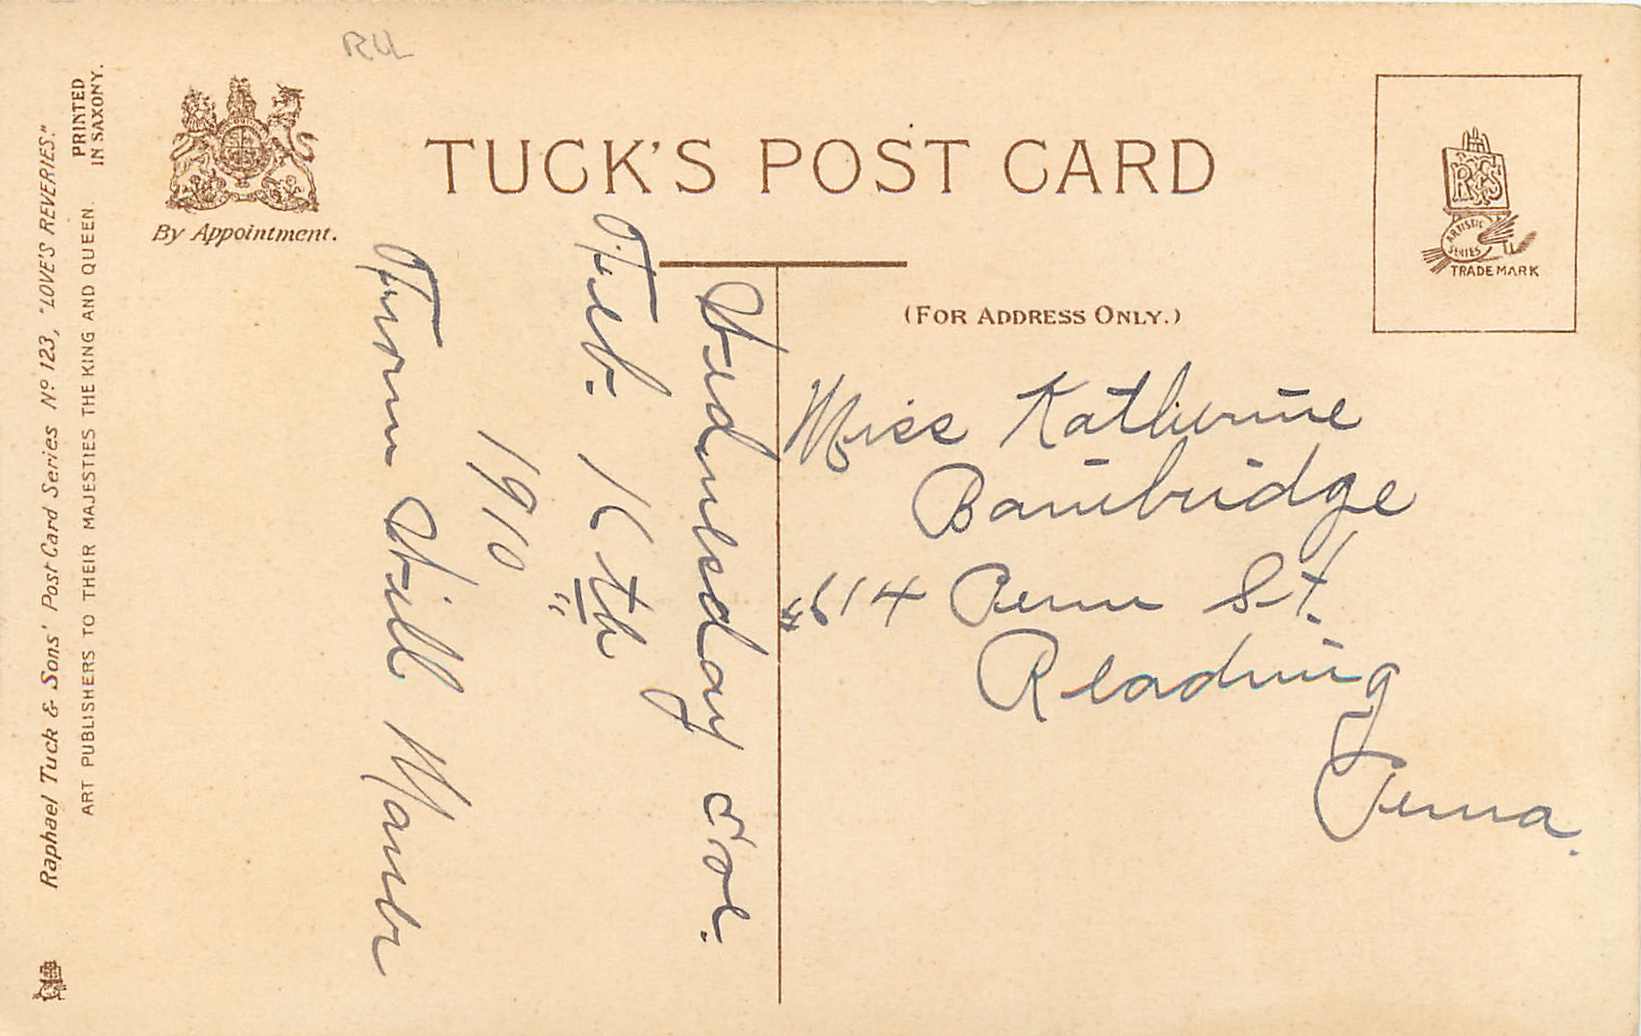 PRINTED
IN SAXONY.
Raphael Tuck & Sons' Post Card Series Nº 123, "LOVE'S REVERIES."
ART PUBLISHERS TO THEIR MAJESTIES THE KING AND QUEEN.
By Appointment.
TUCK'S POST CARD
R T & S
ARTISTIC
SERIES
TRADE MARK
(FOR ADDRESS ONLY.)
Wednesday Eve.
Feb. 16th
1910
From Will
Miss Katherine
Bainbridge
#614 Penn St.
Reading
Penna.